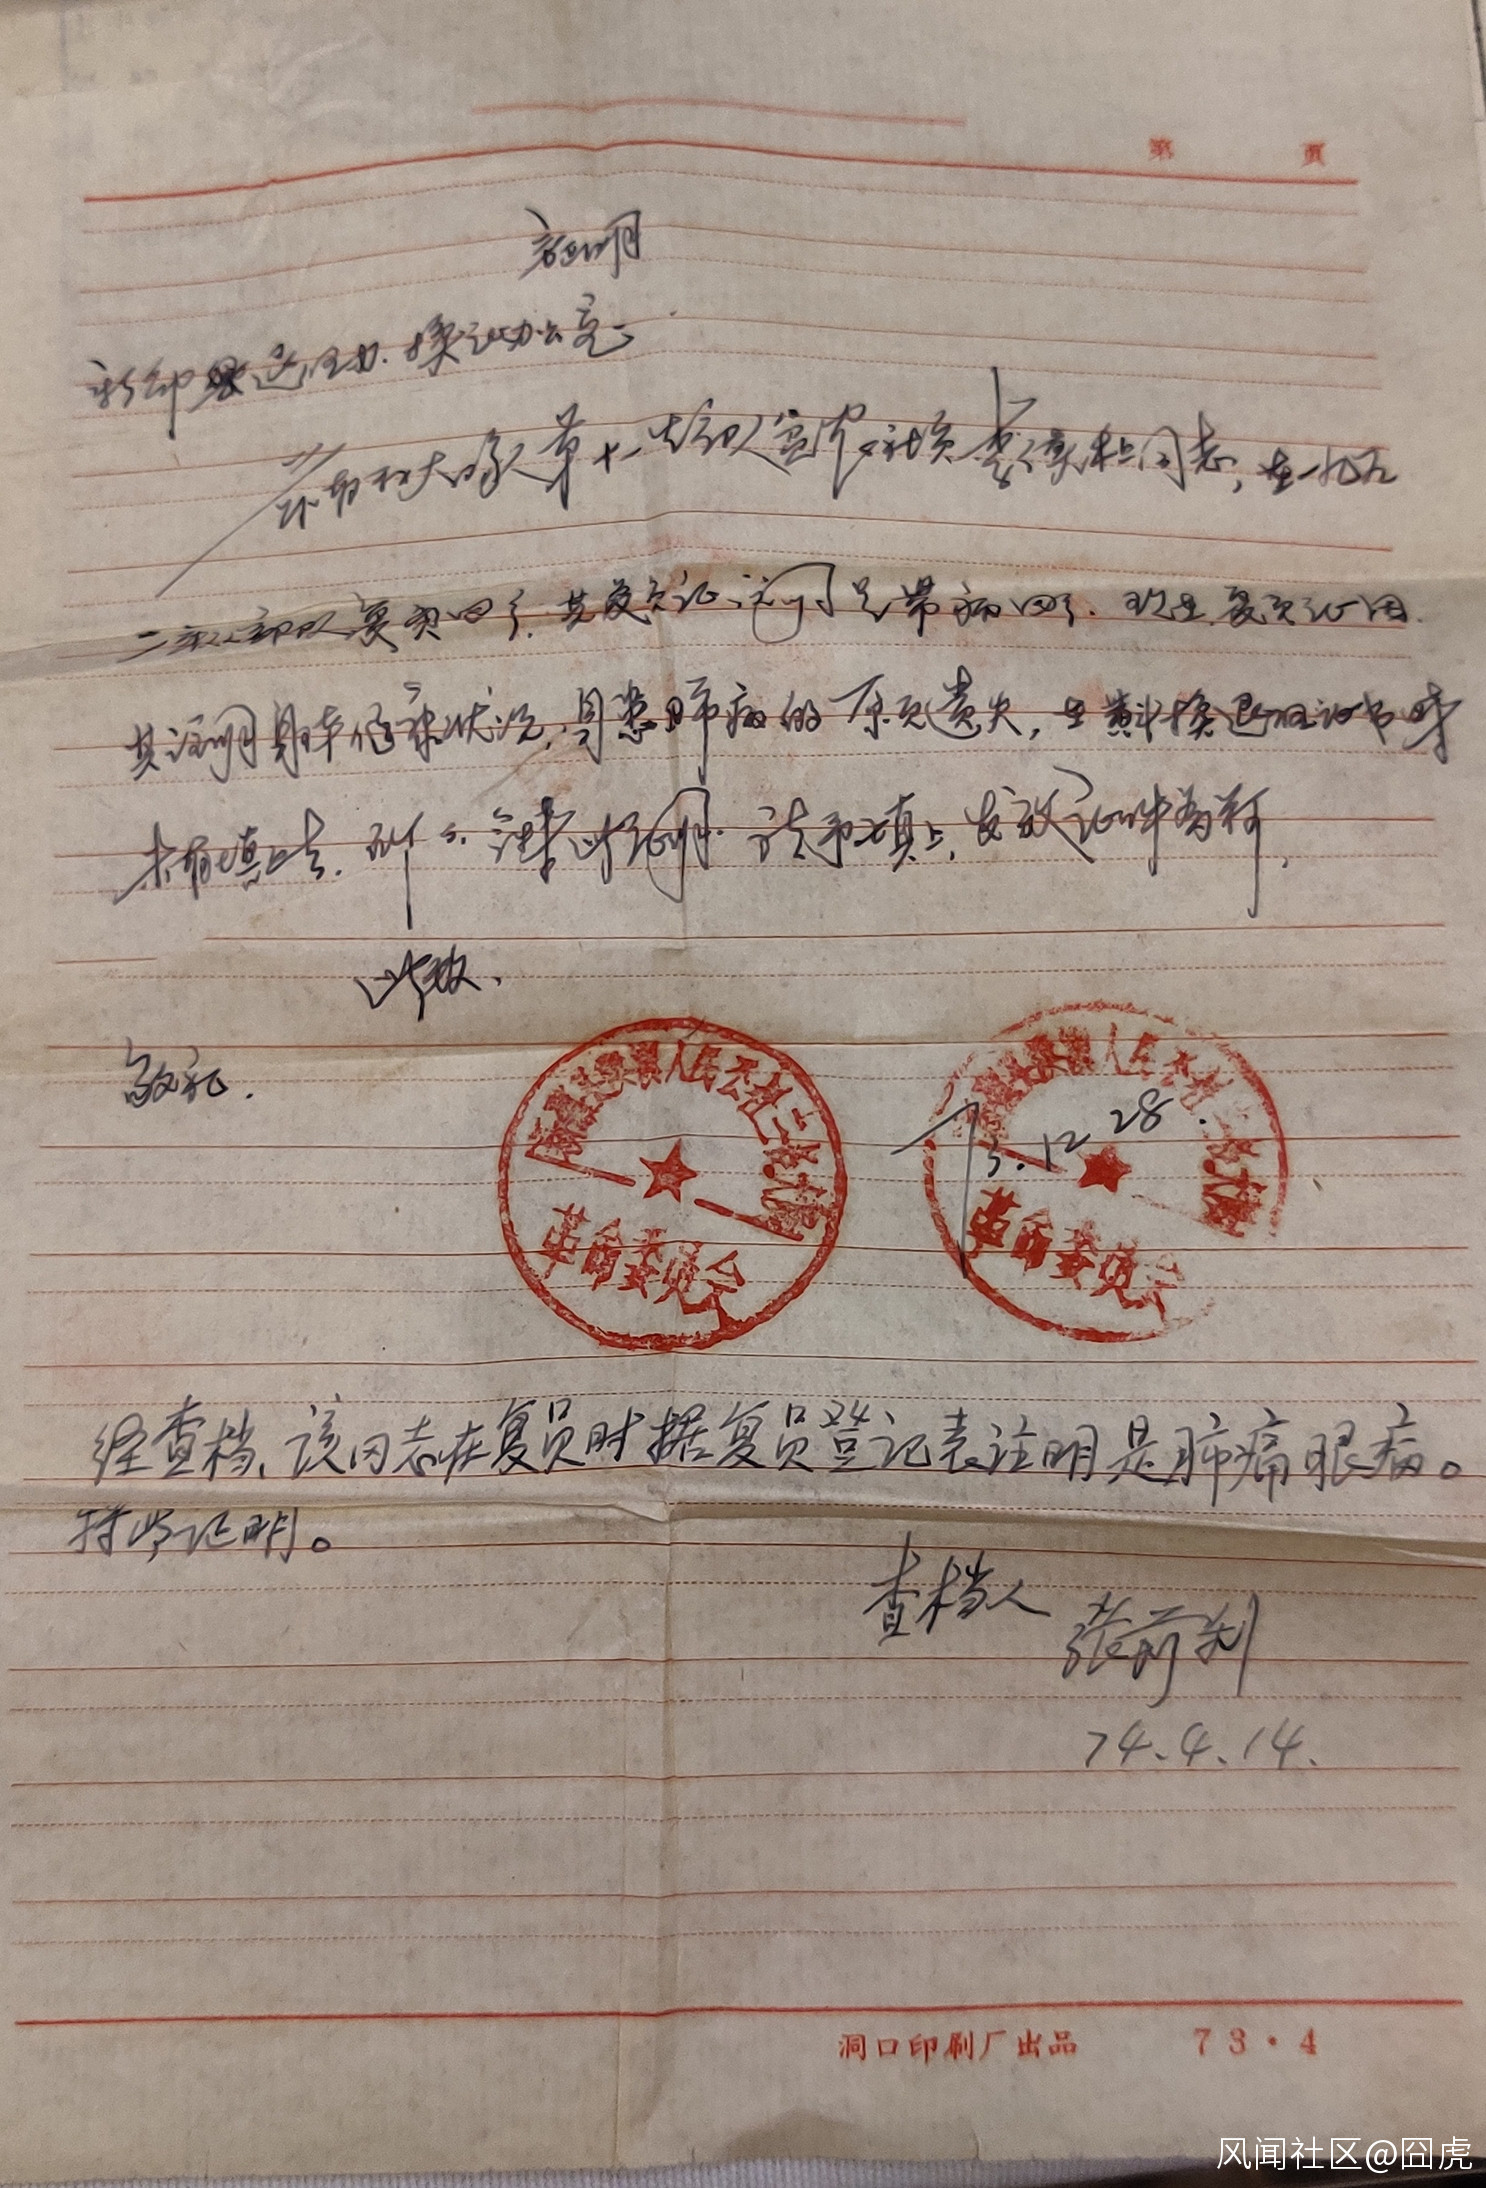 第 页
证明
新邵县退伍办.换证办公室
大队第十一生产队 社员 同志,在一九五
二年从部队复员回乡.其复员证注明是带病回乡.现在复员证因
其证明身体健康状况,另患肺病的原页遗失,在 换退伍证书时
未有填上去. 此证明.请予填上,发放证件为荷,
此致.
敬礼.
人民公社
革命委员会
人民公社
革命委员会
73.12.28.
经查档、该同志在复员时据复员登记表注明是肺痛眼病。
特此证明。
查档人
张前利
74.4.14.
洞口印刷厂出品 73·4
风闻社区@囧虎